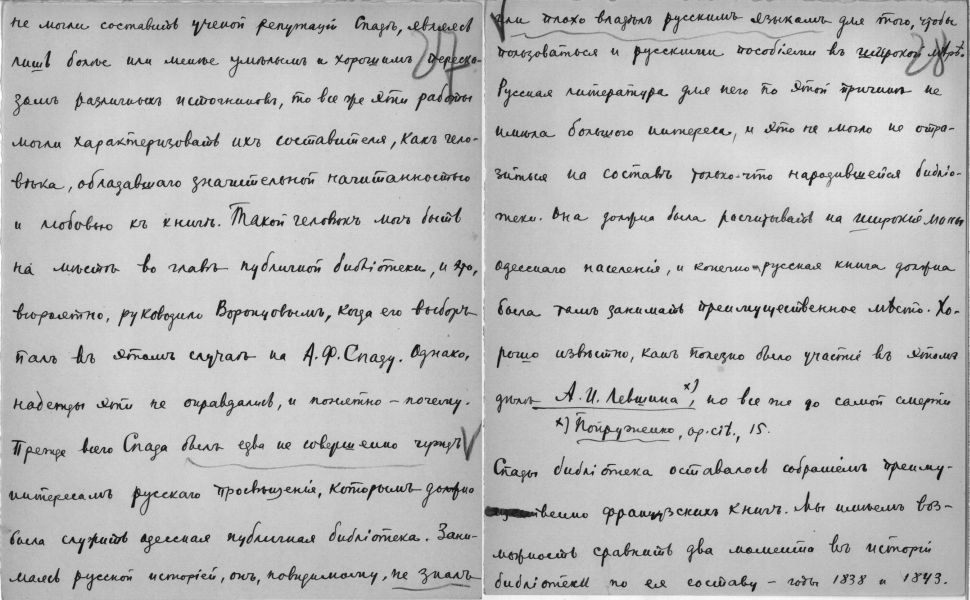 не могли составить ученой репутаціи Спады, являясь
лишь болѣе или менѣе умѣлымъ и хорошимъ переска-
27
зомъ различныхъ источниковъ, то все же эти работы
могли характеризовать ихъ составителя, какъ чело-
вѣка, обладавшаго значительной начитанностью
и любовью къ книгѣ. Такой человѣкъ могъ быть
на мѣстѣ во главѣ публичной библіотеки, и это,
вѣроятно, руководило Воронцовымъ, когда его выборъ
палъ въ этомъ случаѣ на А. Ф. Спаду. Однако,
надежды эти не оправдались, и понятно – почему.
Прежде всего Спада былъ едва не совершенно чуждъ
интересамъ русскаго просвѣщенія, которымъ должно
была служить одесская публичная библіотека. Зани-
маясь русской исторіей, онъ, повидимому, не зналъ
или плохо владѣлъ русскимъ языкомъ для того, чтобы
пользоваться и русскими пособіями въ широкой мѣрѣ.
28
Русская литература для него по этой причинѣ не
имѣла большого интереса, и это не могло не отра-
зиться на составѣ только-что народившейся библіо-
теки. Она должна была расчитывать на широкія массы
одесскаго населенія, и конечно русская книга должна
была тамъ занимать преимущественное мѣсто. Хо-
рошо извѣстно, какъ полезно было участіе въ этомъ
дѣлѣ А. И. Левшина x), но все же до самой смерти
x) Попруженко, op. cit., 15.
Спады библіотека оставалась собраніемъ преиму-
щественно французскихъ книгъ. Мы имѣемъ воз-
можность сравнить два момента въ исторіи
библіотеки по ея составу – годы 1838 и 1843.